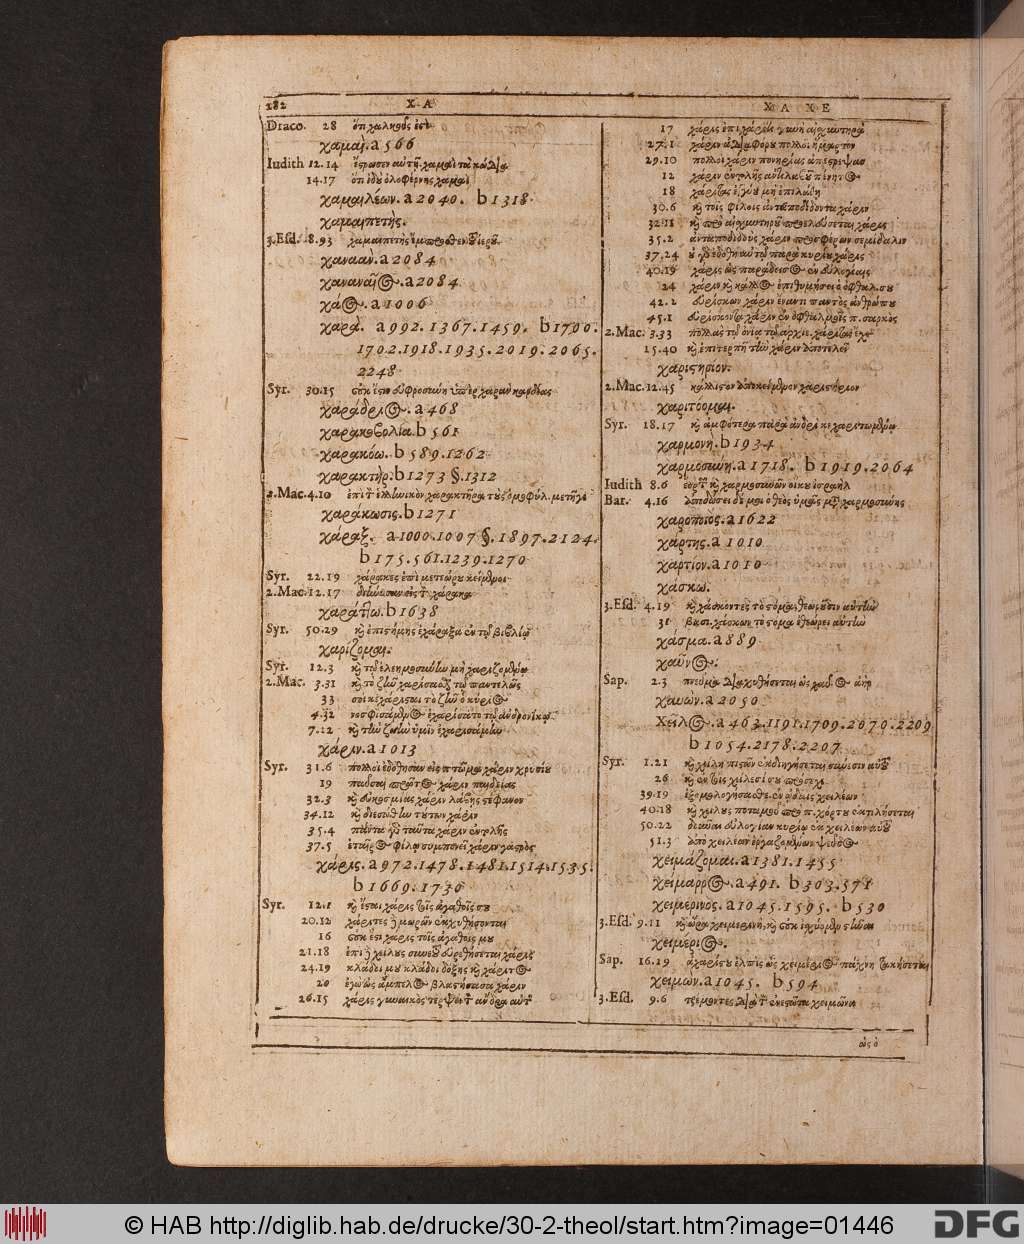 282 Χ Α
Draco. 28 ὅτι χαληθὸς ἐϛι
χαμαί. a 566
Iudith 12.14 ἔϛρωσεν αὐτῇ χαμαὶ τὰ κώδια
14.17 ὅτι ἰδοὺ ὀλοφέρνης χαμαὶ
χαμαιλέων. a 2040. b 1318.
χαμαιπετής.
3.Eſd. 8.93 χαμαιπετὴς ἔμπροθεν τοῦ ἱεροῦ.
χανααν. a 2084
χαναναῖος. a 2084
χάος. a 1006
χαρά. a 992. 1367. 1459. b 1700.
1702. 1918. 1935. 2019. 2065.
2248
Syr. 30.15 οὐκ ἔϛιν εὐφροσύνη ὑπὲρ χαρὰν καρδίας
χαράδριος. a 468
χαρακοβολία. b 561
χαρακόω. b 589. 1262
χαρακτήρ. b 1273 §. 1312
2.Mac. 4.10
χαράκωσις. b 1271
χάραξ. a 1000. 1007 §. 1897. 2124.
b 175. 561. 1239. 1270
Syr. 22.19 χάρακες ἐπὶ μετεώρου κείμενοι
2.Mac. 12.17 διήνυσαν εἰς τ χάρακα
χαράττω. b 1638
Syr. 50.29 καὶ ἐπιϛήμης ἐχάραξα ἐν τῷ βιβλίῳ
χαρίζομαι.
Syr. 12.3 καὶ τῷ ἐλεημοσύνην μὴ χαριζομένῳ
2.Mac. 3.31 καὶ τὸ ζῆν χαρίσαθαι τῷ παντελῶς
33 σοι κεχάριϛαι τὸ ζῆν ὁ κύριος
4.32 νοσφισάμενος ἐχαρίσατο τῷ ἀνδρονίκῳ
7.22 καὶ τὴν ζωὴν ὑμῖν ἐχαρισάμην
χάριν. a 1013
Syr. 31.6 πολλοὶ ἐδόθησαν εἰς πτῶμα χάριν χρυσίου
19
32.3 καὶ εὐκοσμίας χάριν λάβῃς ϛέφανον
34.12 καὶ διεσώθην τούτων χάριν
35.4 πάντα γὰρ ταῦτα χάριν ἐντολῆς
37.5 ἑταῖρος φίλῳ συμπονεῖ χάριν γαϛρὸς
χάρις. a 972. 1478. 1481. 1514. 1535.
b 1669. 1730
Syr. 12.1 καὶ ἔϛαι χάρις τοῖς ἀγαθοῖς σου
20.12 χάριτες ἢ μωρῶν ἐκχυθήσονται
16 οὐκ ἔϛι χάρις τοῖς ἀγαθοῖς μου
21.18 ἐπὶ ἢ χείλους συνετοῦ εὑρεθήσεται χάρις
24.19 κλάδοι μου κλάδοι δόξης καὶ χάριτος
20 ἐγὼ ὡς ἄμπελος βλαϛήσασα χάριν
26.15 χάρις γυναικὸς τέρψει τ ἄνδρα αὐτ
Χ Α Χ Ε
17 χάρις ἐπὶ χάριτι γυνὴ αἰχυντηρά
27.1 χάριν ἀδιαφόρου πολλοὶ ἥμαρτον
29.10 πολλοὶ χάριν πονηρίας ἀπέϛρεψαν
12 χάριν ἐντολῆς ἀντιλαβοῦ πένητος
18 χάριτας ἐγγύου μὴ ἐπιλάθῃ
30.6 καὶ τοῖς φίλοις ἀνταποδιδόντα χάριν
32.11 καὶ πρὸ αἰχυντηροῦ προελεύσεται χάρις
35.2 ἀνταποδιδοὺς χάριν προσφέρων σεμίδαλιν
37.24 οὐ γὰρ ἐδόθη αὐτῷ παρὰ κυρίου χάρις
40.19 χάρις ὡς παράδεισος ἐν εὐλογίαις
24 χάριν καὶ κάλλος ἐπιθυμήσει ὁ ὀφθαλ. σου
42.2 εὑρίσκων χάριν ἔναντι παντὸς ἀνθρώπου
45.1 εὑρίσκοντα χάριν ἐν ὀφθαλμοῖς π. σαρκὸς
2.Mac. 3.33
15.40 καὶ ἐπιτερπῆ τὴν χάριν ἀποτελεῖ
χαριϛήριον.
2.Mac. 12.45 κάλλιϛον ἀποκείμενον χαριϛήριον
χαριτόομαι.
Syr. 18.17 καὶ ἀμφότερα παρὰ ἀνδρὶ κεχαριτωμένῳ
χαρμονή. b 1934
χαρμοσύνη. a 1718. b 1919. 2064
Iudith 8.6 ἑορτῶν καὶ χαρμοσυνῶν οἴκου ἰσραήλ
Bar. 4.16 ἀποδώσει δέ μοι ὁ θεὸς ὑμᾶς μετὰ χαρμοσύνης
χαροποιός. a 1622
χάρτης. a 1010
χαρτίον. a 1010
χάσκω.
3.Eſd. 4.19 καὶ χάσκοντες τὸ ϛόμα, θεωροῦσιν αὐτήν
31 βασι. χάσκων τὸ ϛόμα ἐθεώρει αὐτήν
χάσμα. a 889
χαῦνος.
Sap. 2.3 πνεῦμα διαχυθήσεται ὡς χαῦνος ἀήρ
χαυών. a 2050
χεῖλος. a 463. 1191. 1709. 2070. 2209
b 1054. 2178. 2207
Syr. 1.21 καὶ χείλη πιϛῶν ἐκδιηγήσεται σύνεσιν αὐτοῦ
26 καὶ ἐν τοῖς χείλεσί σου πρόσεχε
39.19 ἐξομολογήσαθε ἐν ᾠδαῖς χειλέων
40.18 καὶ χείλους ποταμοῦ πρὸ π. χόρτου ἐκτιλήσεται
50.22 δοῦναι εὐλογίαν κυρίῳ ἐκ χειλέων αὐτοῦ
51.3 ἀπὸ χειλέων ἐργαζομένων ψεῦδος
χειμάζομαι. a 1381. 1455
χείμαρρος. a 491. b 303. 571
χειμερινός. a 1045. 1595. b 530
3.Eſd. 9.11 καὶ ὥρα χειμερινή, καὶ οὐκ ἰχύομεν ϛῆναι
χειμέριος.
Sap. 16.19 ἀχαρίϛου ἐλπὶς ὡς χειμέριος πάχνη τακήσεται
χειμών. a 1045. b 594
3.Eſd. 9.6 τρέμοντες διὰ τ ἐνεϛῶτα χειμῶνα
ὡς ὁ
© HAB http://diglib.hab.de/drucke/30-2-theol/start.htm?image=01446
DFG